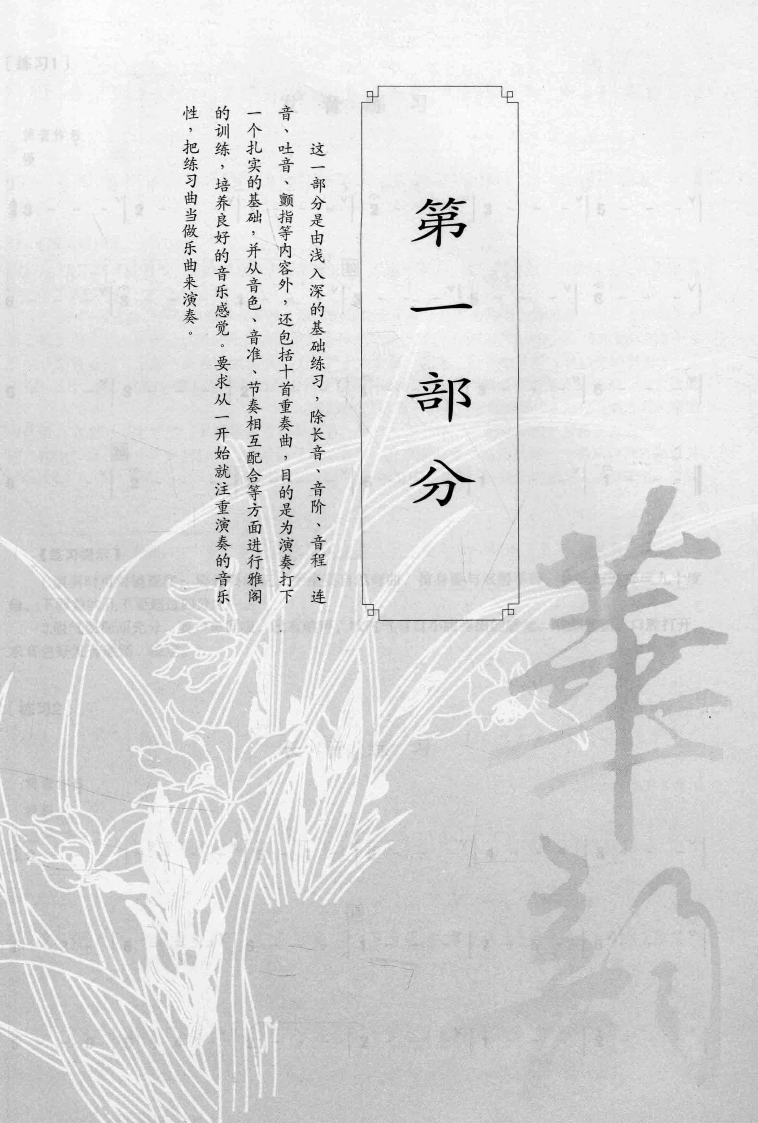 第一部分
这一部分是由浅入深的基础练习，除长音、音阶、音程、连
音、吐音、颤指等内容外，还包括十首重奏曲，目的是为演奏打下
一个扎实的基础，并从音色、音准、节奏相互配合等方面进行雅阁
的训练，培养良好的音乐感觉。要求从一开始就注重演奏的音乐
性，把练习曲当做乐曲来演奏。